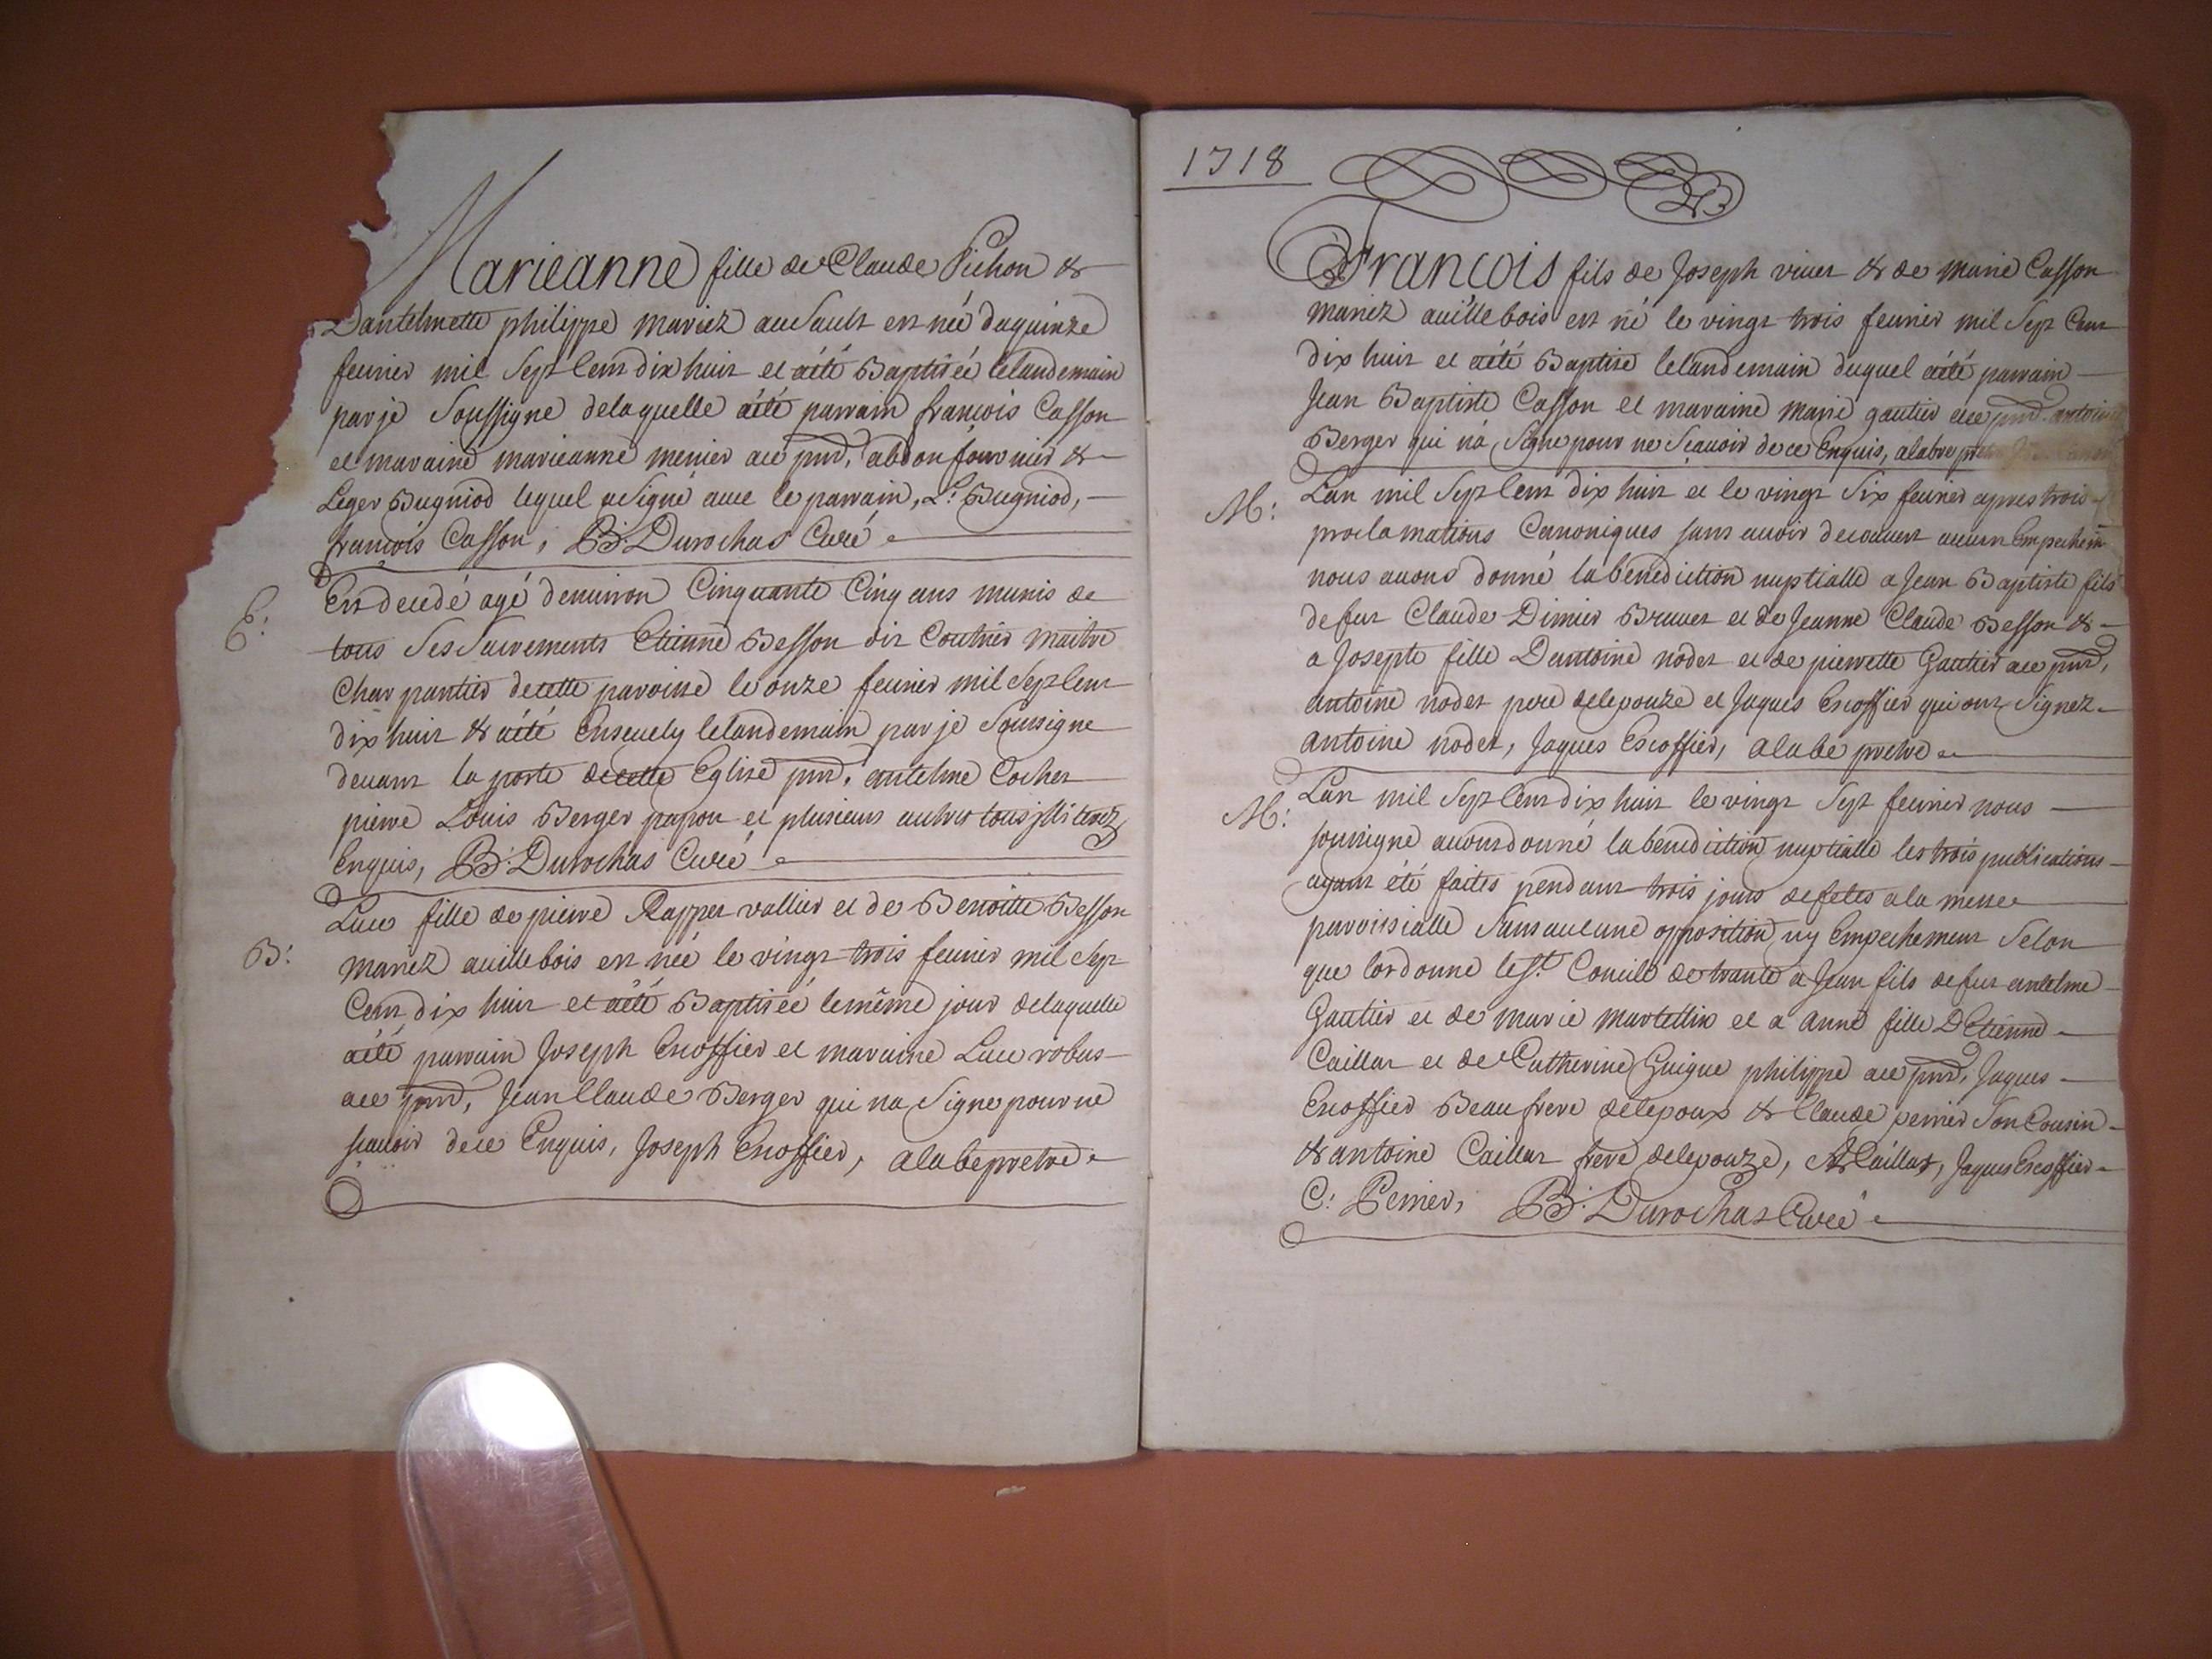 Marieanne fille de Claude Pichon &
Dantelmette philippe mariez au Sault est née du quinze
feurier mil Sept Cent dix huit et aété Baptisée lelandemain
par je Soussigne delaquelle aété parrain francois Casson
et maraine marieanne menier ace pnt, abdon fournier &
Leger Bugniod lequel a Signé auec le parrain, L: Bugniod,
francois Casson, B: Durochas Curé
E:
Est decedé agé denuiron Cinquante Cinq ans munis de
tous Ses Sacrements Etienne Besson dit Coutrier maitre
Charpantier decette paroisse le onze feurier mil Sept Cent
dix huit & aété Enseuely lelandemain par je Soussigne
deuant la porte decette Eglise pnt, antelme Cochet
pierre Louis Berger papon et plusieurs autres tous jlliterez
Enquis, B: Durochas Curé
B:
Luce fille de pierre Rappet vallier et de Benoitte Besson
mariez auillebois est née le vingt trois feurier mil Sept
Cent dix huit et aété Baptisée lemême jour delaquelle
aété parrain Joseph Escoffier et maraine Luce robas
ace pnt, Jean Claude Berger qui na Signe pour ne
scauoir dece Enquis, Joseph Escoffier, alabe pretre
1718
Francois fils de Joseph viuet & de marie Casson
mariez auillebois est né le vingt trois feurier mil Sept Cent
dix huit et aété Baptise lelandemain duquel aété parrain
Jean Baptiste Casson et maraine marie gautier ace pnt antoine
Berger qui na Signe pour ne Scauoir dece Enquis, alabe
M:
Lan mil Sept Cent dix huit et le vingt Six feurier apres trois
proclamations Canoniques sans auoir decouuert aucun Empechem
nous auons donné la benediction nuptialle a Jean Baptiste fils
defut Claude Dimier Bruuet et de Jeanne Claude Besson &
a Josepte fille Dantoine nodet et de pierrette Gautier ace pnt,
antoine nodet pere delepouze et Jaques Escoffier qui ont Signez
antoine nodet, Jaques Escoffier, alabe pretre
M:
Lan mil Sept Cent dix huit le vingt Sept feurier nous
soussigne auons donné la benediction nuptialle les trois publications
ayant été faites pendant trois jours defetes ala messe
paroissialle Sans aucune opposition ny Empechement Selon
que lordonne le St. Concile de trante a Jean fils defut antelme
Gautier et de marie martellin et a anne fille DEtienne
Caillat et de Catherine Guigue philippe ace pnt, Jaques
Escoffier Beau frere delepoux & Claude perrier Son Cousin
& antoine Caillat frere delepouze, A Caillat, Jaques Escoffier
C: Perrier, B: Durochas Curé